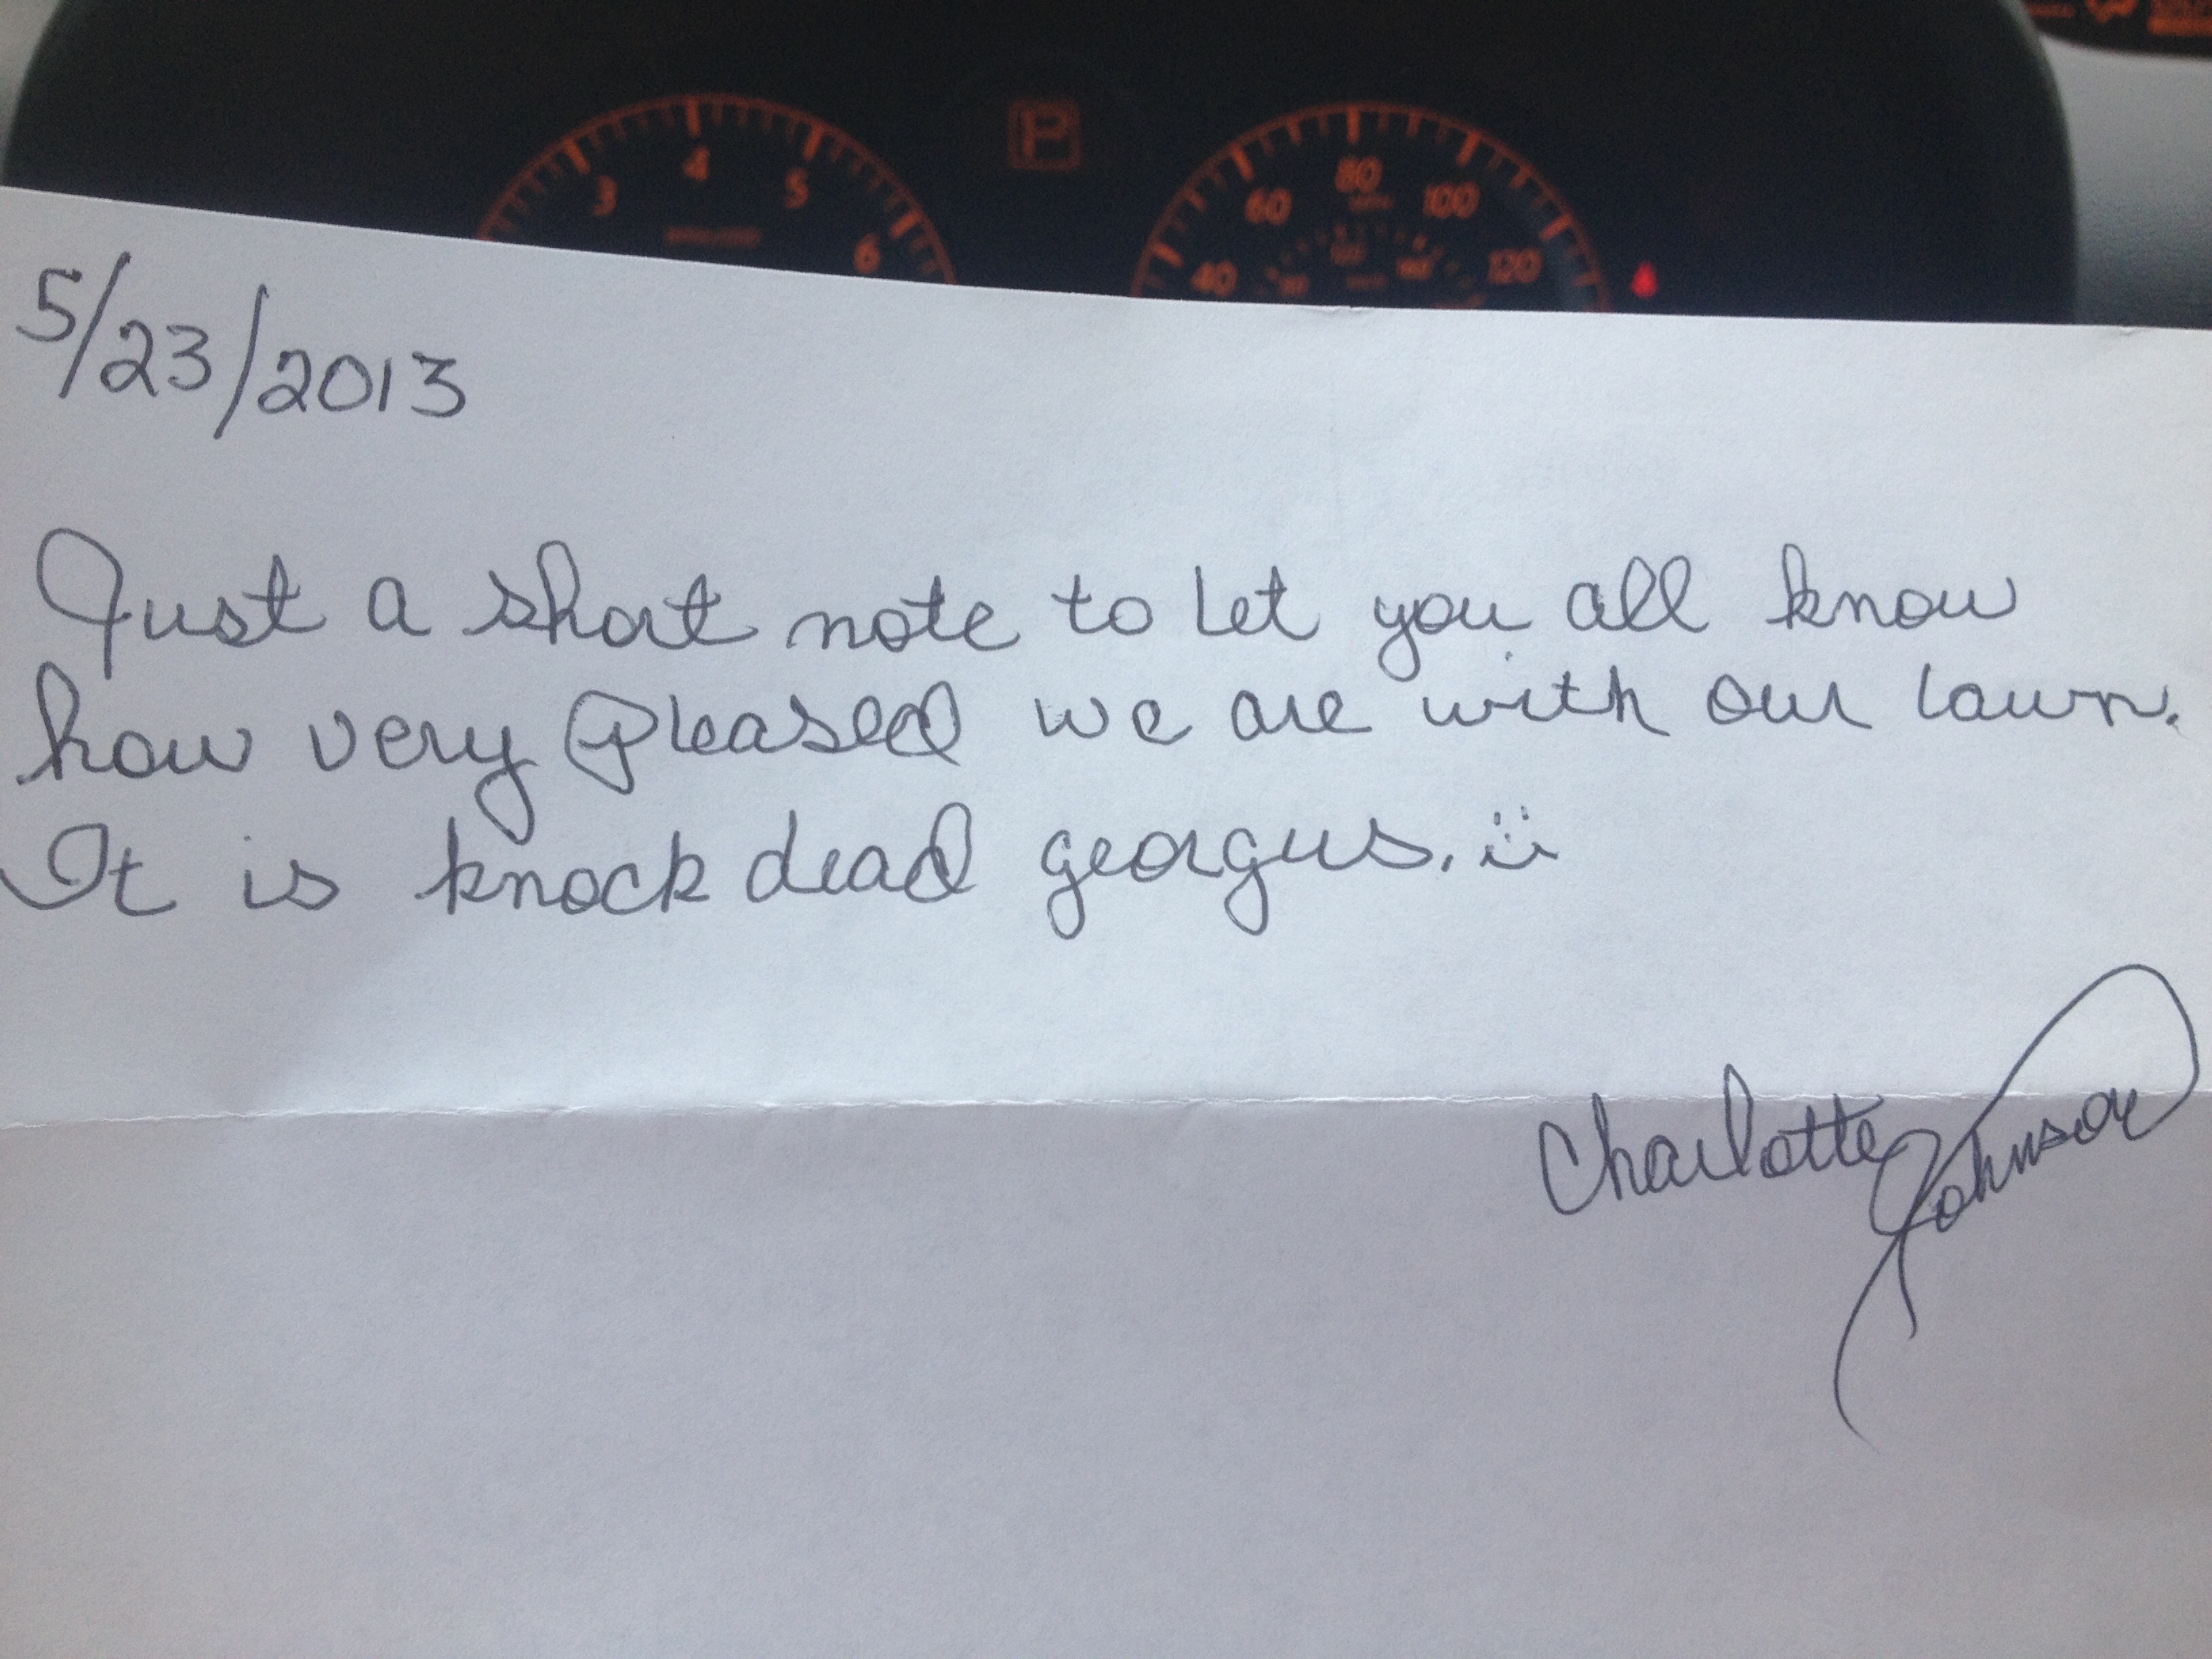 3 4 5 6
P
40 60 80 100 120
5/23/2013
Just a short note to let you all know
how very pleased we are with our lawn.
It is knock dead georgus. ü
Charlotte Johnson